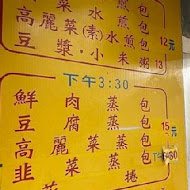 菜水煎包
高麗菜(素)水煎包 12元
豆漿·小米粥 13
下午3:30
鮮肉蒸包
豆腐蒸包 15元
高麗菜蒸包
韭菜蒸包
捲